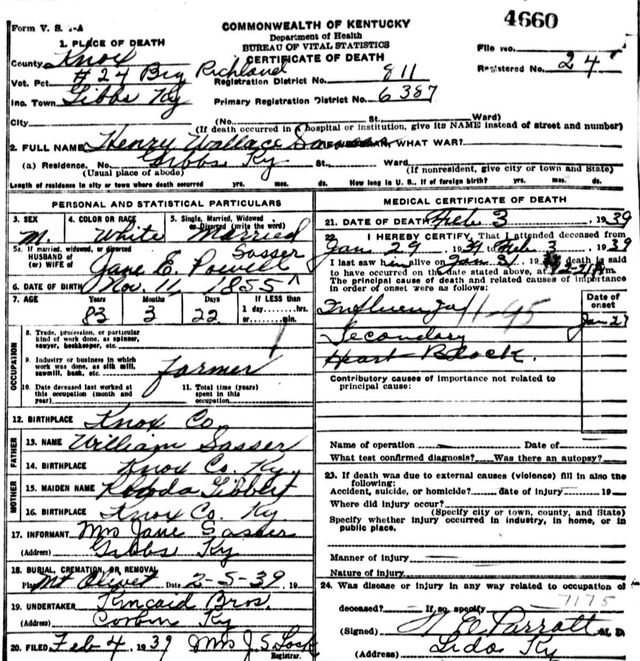 Form V. S. 1-A
COMMONWEALTH OF KENTUCKY
Department of Health
BUREAU OF VITAL STATISTICS
CERTIFICATE OF DEATH
4660
1. PLACE OF DEATH
County Knox
File no.
Vot. Pct. #24 Big Richland
Registration District No. 811
Registered No. 24
Inc. Town Gibbs Ky
Primary Registration District No. 6387
City (No. St. Ward)
(If death occurred in a hospital or institution, give its NAME instead of street and number)
2. FULL NAME Henry Wallace WAR, WHAT WAR?
(a) Residence, No. Gibbs Ky St. Ward
(Usual place of abode) (If nonresident, give city or town and State)
Length of residence in city or town where death occurred yrs. mos. ds. How long in U. S., if of foreign birth? yrs. mos. ds.
PERSONAL AND STATISTICAL PARTICULARS
3. SEX 4. COLOR OR RACE 5. Single, Married, Widowed
or Divorced (write the word)
M. White Married
5a. If married, widowed, or divorced
HUSBAND of
(or) WIFE of Jane E. Powell Sasser
6. DATE OF BIRTH Nov. 11, 1855
7. AGE Years Months Days If LESS than
1 day hrs.
or min.
83 3 22
OCCUPATION
8. Trade, profession, or particular
kind of work done, as spinner,
sawyer, bookkeeper, etc.
9. Industry or business in which
work was done, as silk mill,
sawmill, bank, etc.
farmer
10. Date deceased last worked at
this occupation (month and
year)
11. Total time (years)
spent in this
occupation
12. BIRTHPLACE Knox Co
FATHER
13. NAME William Sasser
14. BIRTHPLACE Knox Co. Ky
MOTHER
15. MAIDEN NAME Gibbert
16. BIRTHPLACE Knox Co. Ky
17. INFORMANT Mrs Jane Sasser
(Address) Gibbs Ky
18. BURIAL, CREMATION, OR REMOVAL
Place Mt Olivet Date 2-5-39, 19
19. UNDERTAKER Kincaid Bros.
(Address) Corbin Ky
20. FILED Feb 4, 1939 Mrs J. S.
Registrar.
MEDICAL CERTIFICATE OF DEATH
21. DATE OF DEATH Feb 3, 1939
22. I HEREBY CERTIFY, That I attended deceased from
Jan 29, 1939, to Feb 3, 1939
I last saw him alive on Jan 31, 19 death is said
to have occurred on the date stated above, at
The principal cause of death and related causes of importance
in order of onset were as follows:
Date of
onset
Influenza
Secondary
Heart Block.
Contributory causes of importance not related to
principal cause:
Name of operation Date of
What test confirmed diagnosis? Was there an autopsy?
23. If death was due to external causes (violence) fill in also the
following:
Accident, suicide, or homicide? date of injury 19
Where did injury occur?
(Specify city or town, county, and State)
Specify whether injury occurred in industry, in home, or in
public place.
Manner of injury
Nature of injury
24. Was disease or injury in any way related to occupation of
deceased? If so, specify
7175
(Signed) Parrott M. D.
(Address) Lida Ky